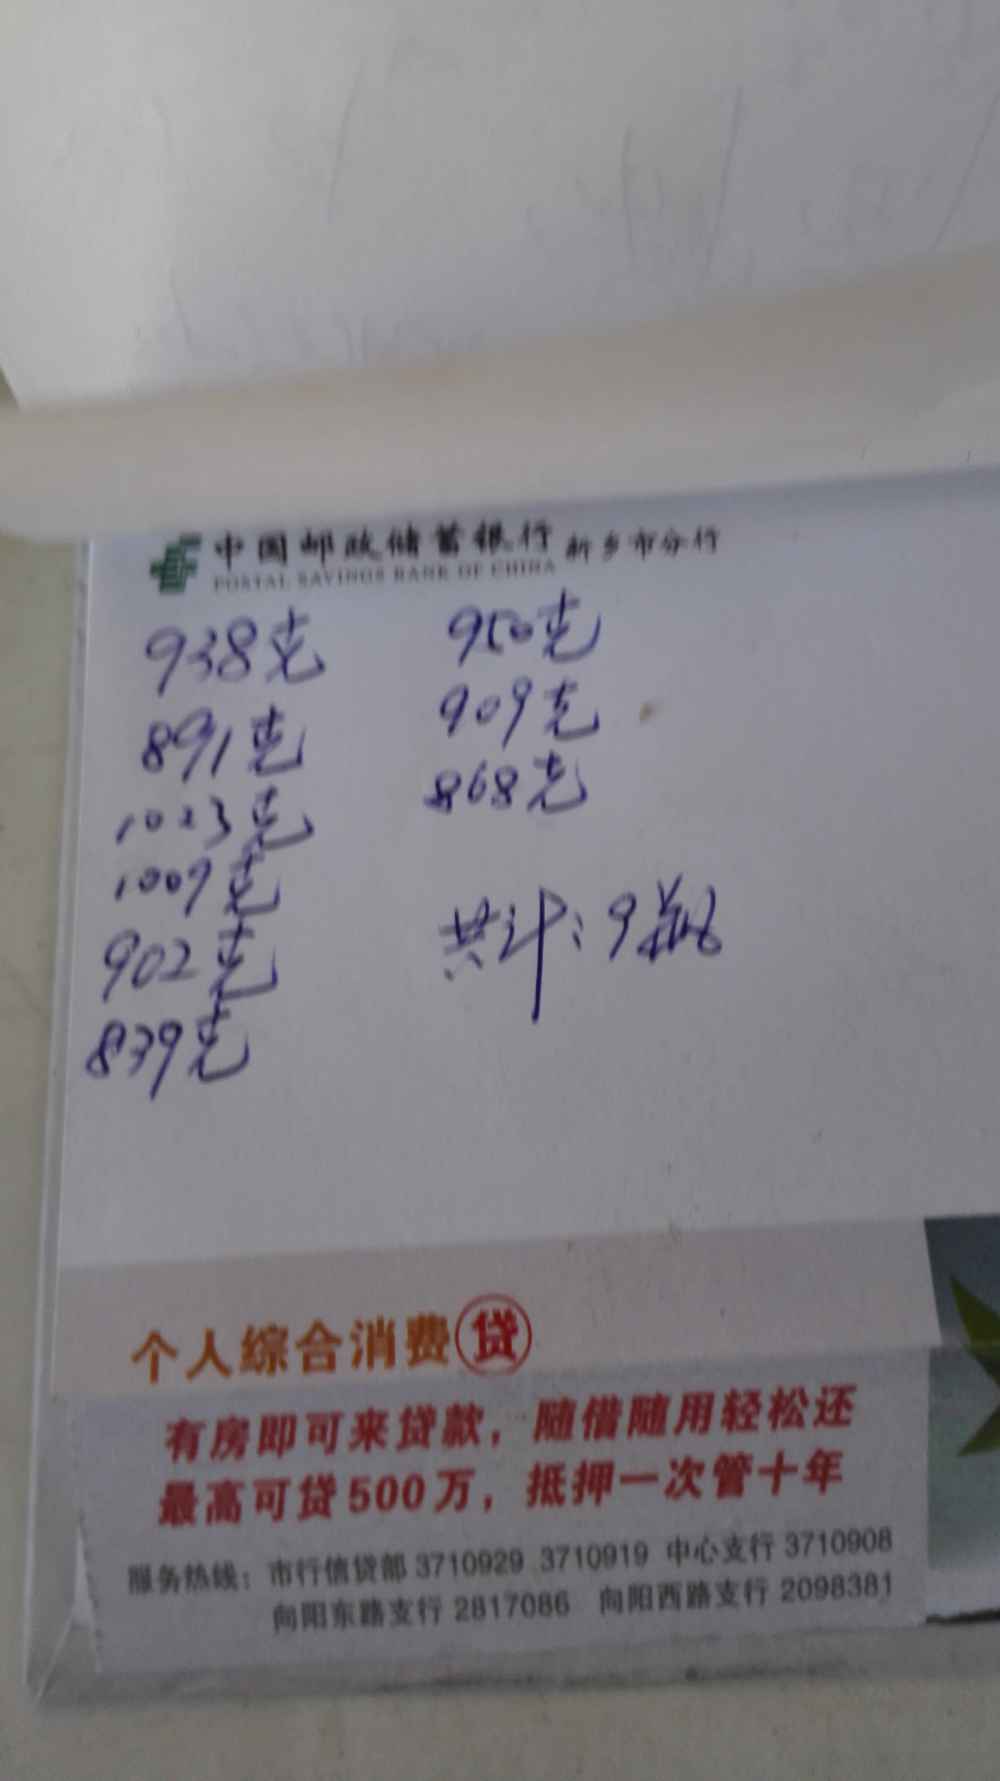 中国邮政储蓄银行 新乡市分行
POSTAL SAVINGS BANK OF CHINA
938克
891克
1023克
1009克
902克
839克
950克
909克
868克
共计：9瓶
个人综合消费贷
有房即可来贷款，随借随用轻松还
最高可贷500万，抵押一次管十年
服务热线：市行信贷部 3710929 3710919 中心支行 3710908
向阳东路支行 2817086 向阳西路支行 2098381